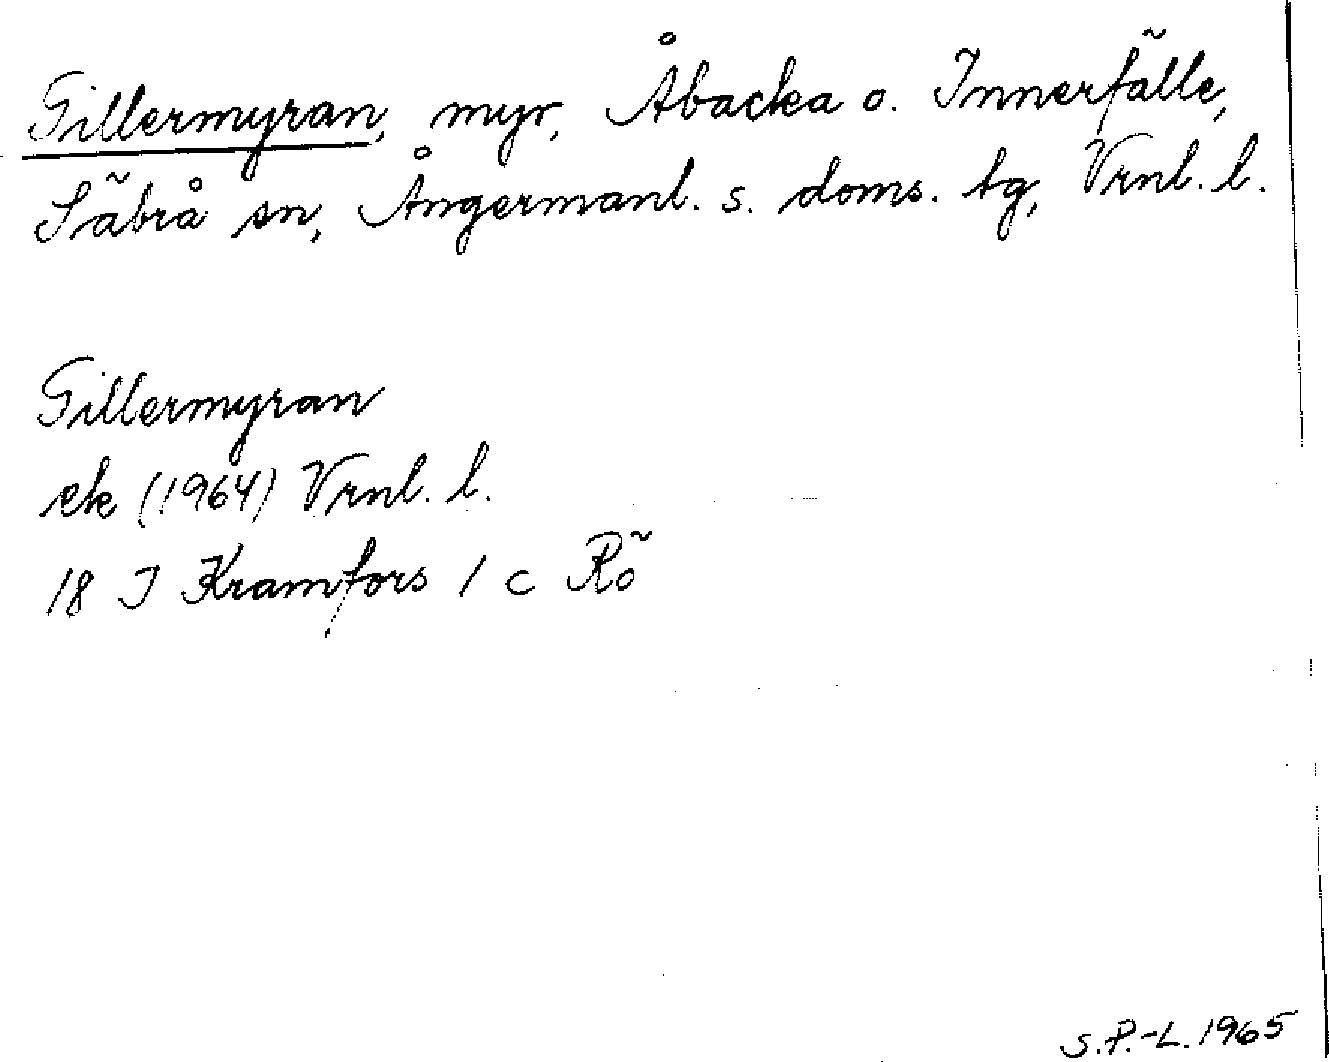 Gillermyran, myr, Åbacka o. Innerfälle,
Säbrå sn, Ångermanl. s. doms. tg, Vrnl. l.
Gillermyran
ek (1964) Vrnl. l.
18 I Kramfors 1 c Rö
S.P.-L. 1965